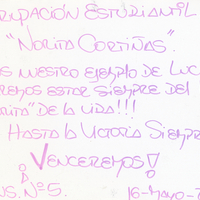 RUPACIÓN ESTUDIANTIL
"NORITA CORTIÑAS".
ES NUESTRO EJEMPLO DE LUC
REMOS ESTAR SIEMPRE DEL
RITA" DE LA VIDA!!!
HASTA LA VICTORIA SIEMPRE
¡VENCEREMOS!
NS. Nº 5. 16-MAYO-